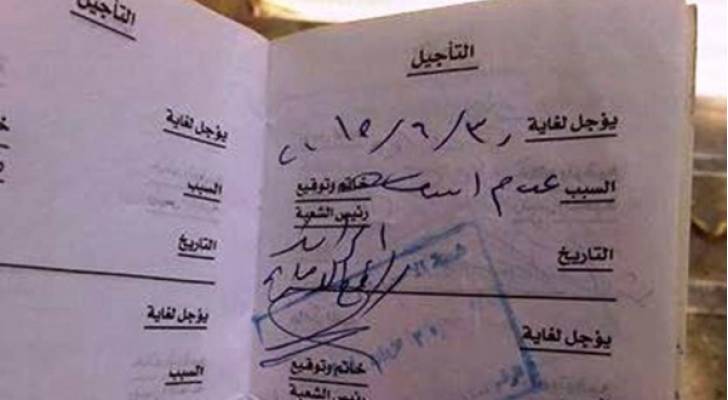 التأجيل
يؤجل لغاية
السبب
التاريخ
يؤجل لغاية
السبب
التأجيل
يؤجل لغاية ٣٠/٦/٢٠١٥
السبب عدم
خاتم وتوقيع
رئيس الشعبة
التاريخ
الرائد
يؤجل لغاية
خاتم وتوقيع
السبب
رئيس الشعبة